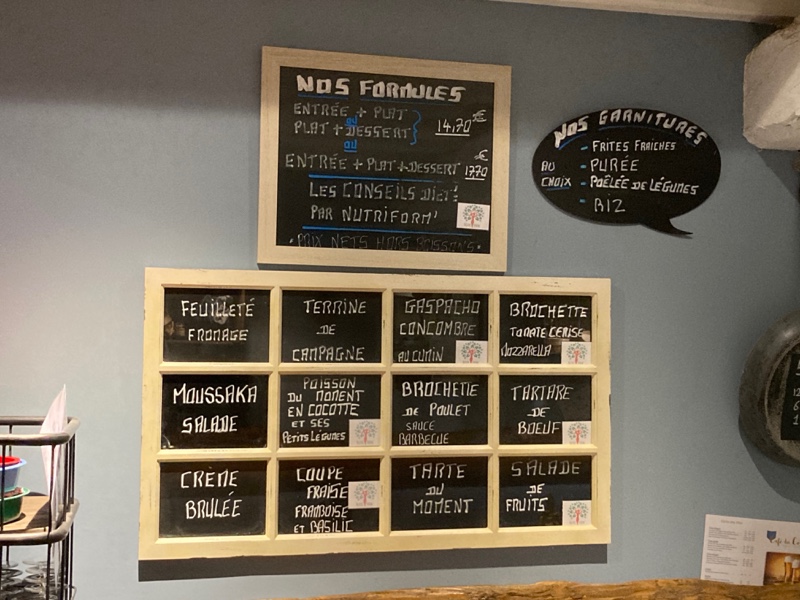 NOS FORMULES
ENTRÉE + PLAT
OU
PLAT + DESSERT
14,70€
OU
ENTRÉE + PLAT + DESSERT 17,70€
LES CONSEILS DIET!
PAR NUTRIFORM'
• PRIX NETS HORS BOISSONS •
NOS GARNITURES
AU CHOIX
- FRITES FRAICHES
- PURÉE
- POÊLÉE DE LÉGUMES
- RIZ
FEUILLETÉ
FROMAGE
TERRINE
DE
CAMPAGNE
GASPACHO
CONCOMBRE
AU CUMIN
BROCHETTE
TOMATE CERISE
MOZZARELLA
MOUSSAKA
SALADE
POISSON
DU MOMENT
EN COCOTTE
ET SES
PETITS LÉGUMES
BROCHETTE
DE POULET
SAUCE
BARBECUE
TARTARE
DE
BOEUF
CRÈME
BRULÉE
COUPE
FRAISE
FRAMBOISE
ET BASILIC
TARTE
DU
MOMENT
SALADE
DE
FRUITS